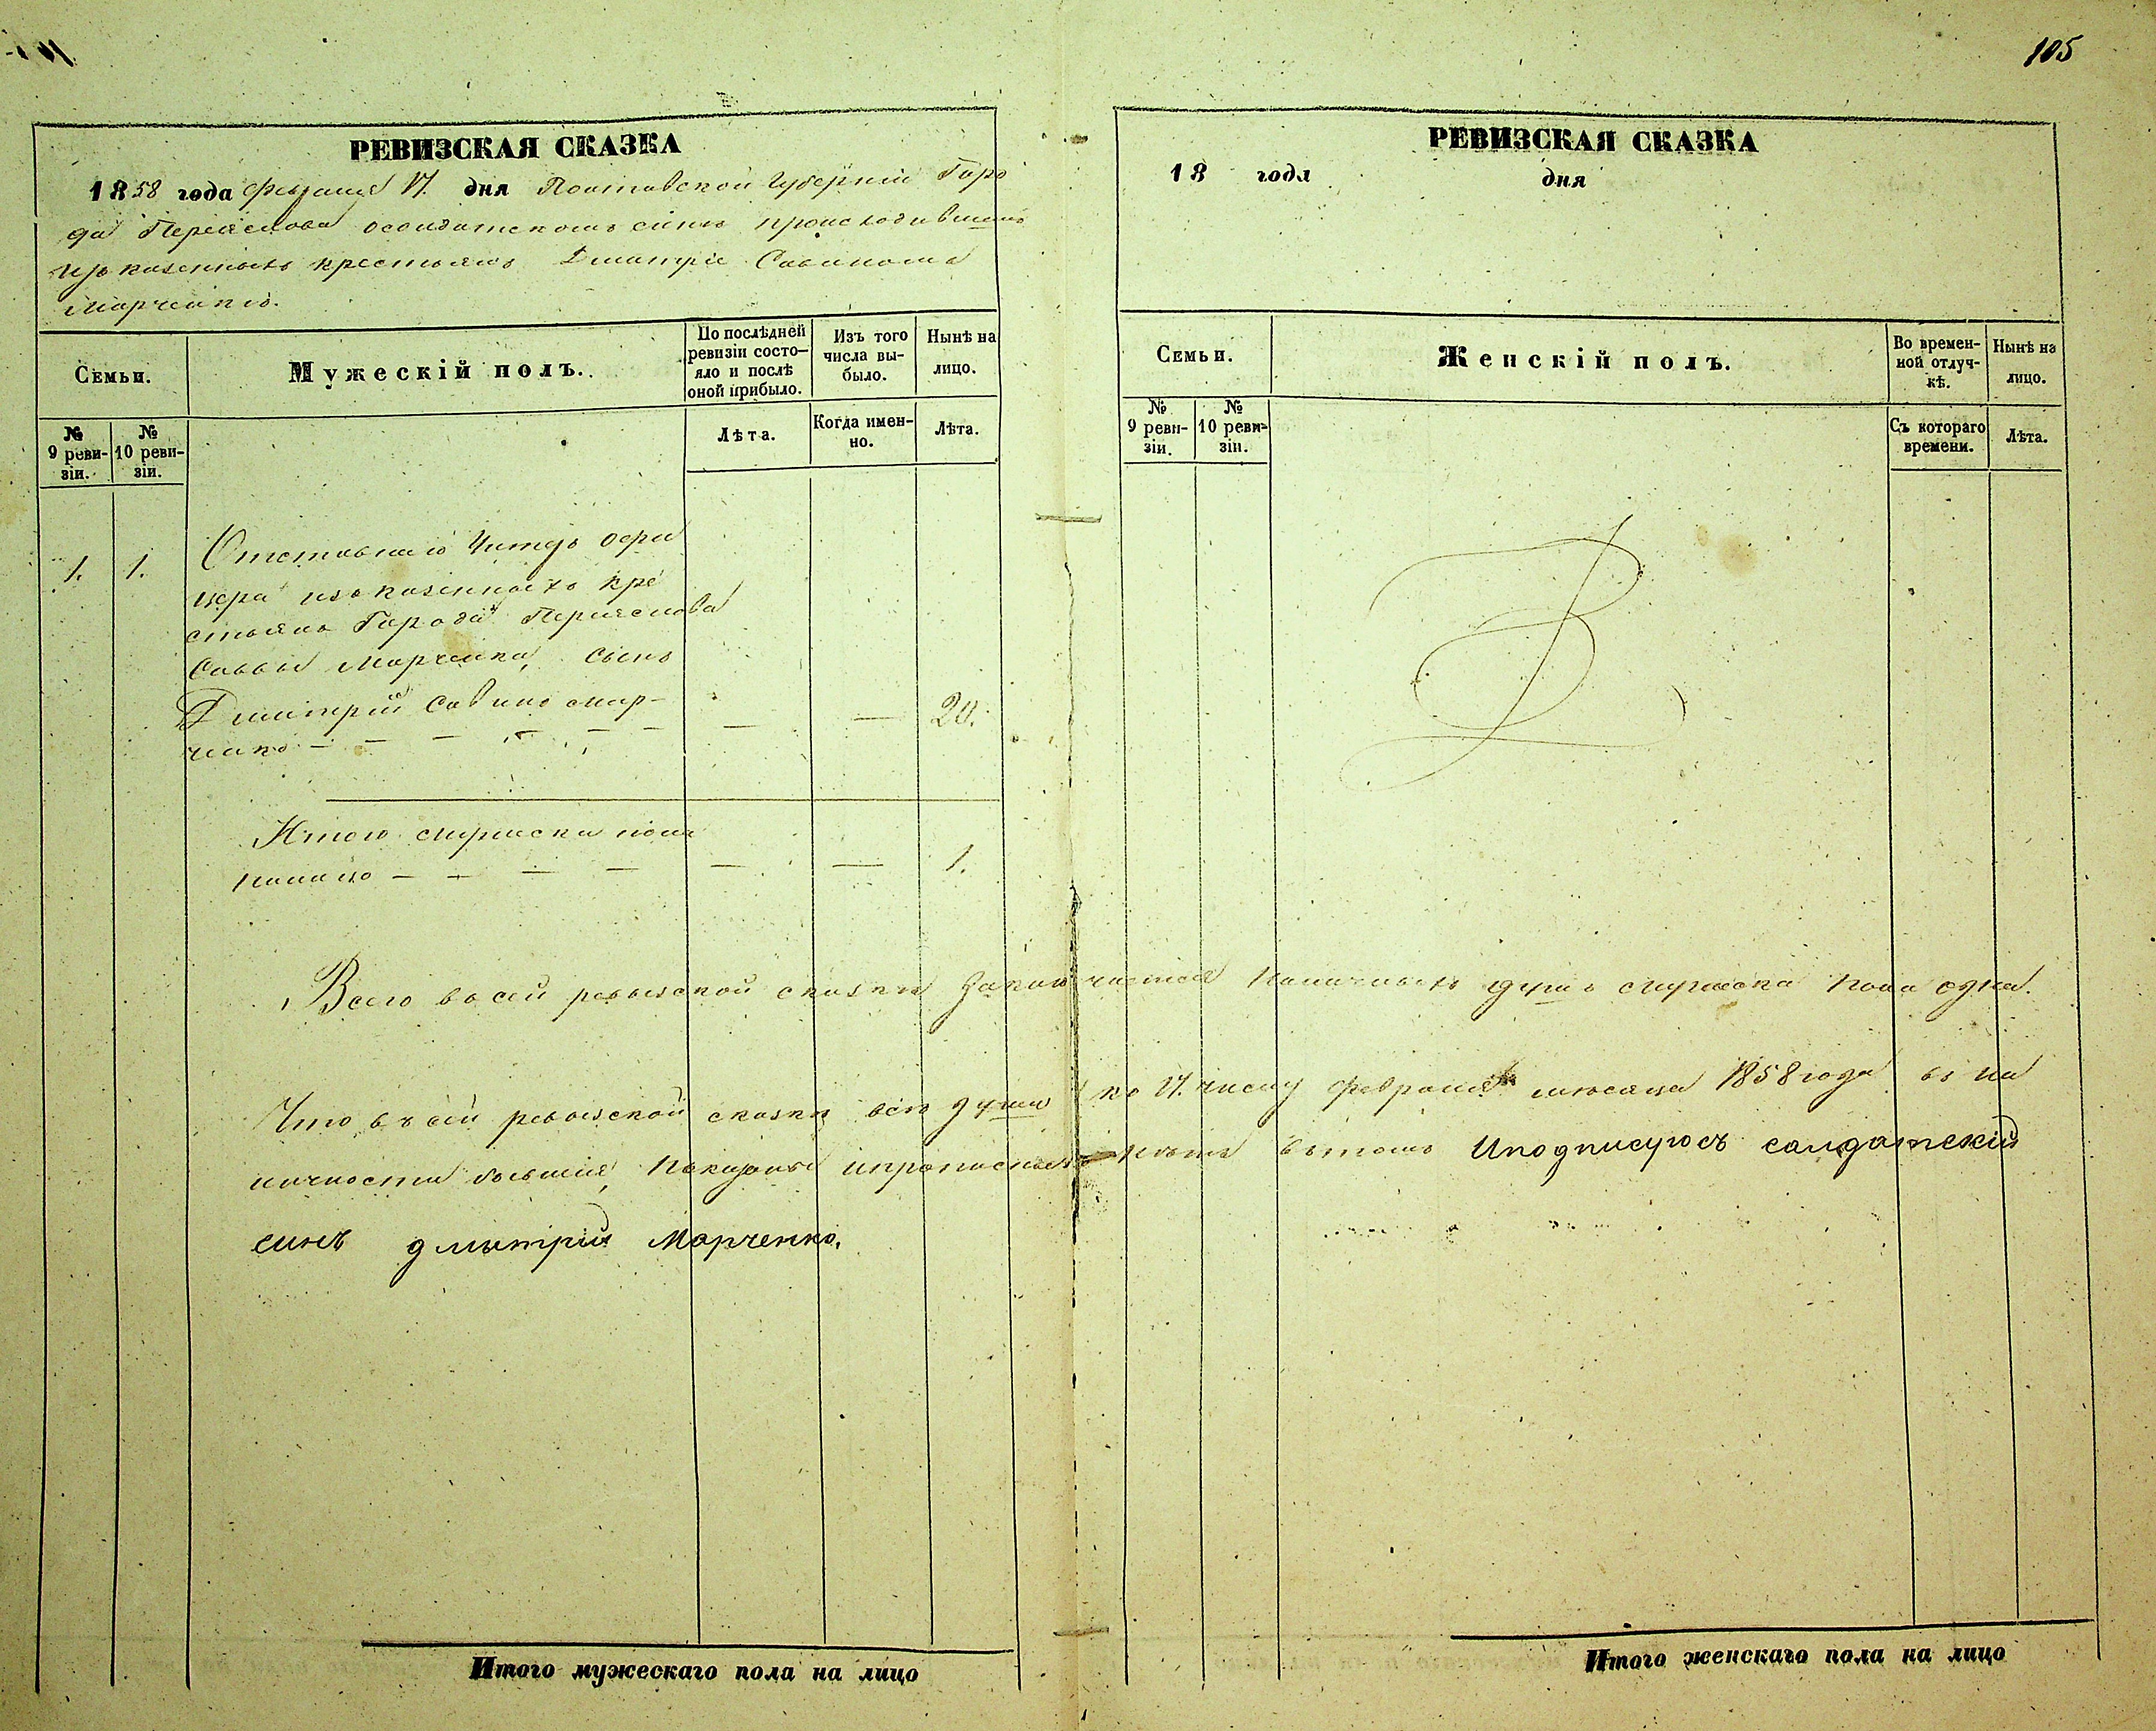 105
РЕВИЗСКАЯ СКАЗКА
1858 года февраля 17. дня Полтавской Губерніи Горо
да Переяслова осолдатскомъ сынѣ происходившемъ
изъ казенныхъ крестьянъ Дмитріе Савиномъ
Марченкѣ.
Семьи.
Мужескій полъ.
По послѣдней ревизіи состо-яло и послѣ оной прибыло.
Изъ того числа вы-было.
Нынѣ на лицо.
№ 9 реви-зіи.
№ 10 реви-зіи.
Лѣта.
Когда имен-но.
Лѣта.
1. 1. Отставнаго Унтеръ офи
цера изъ казенныхъ кре
стьянъ Города Переяслова
Саввы Марченка, сынъ
Дмитрій Савинъ Мар-
ченко — — — — — — — — 20.
Итого мужеска пола
налицо — — — — — — 1.
РЕВИЗСКАЯ СКАЗКА
18 года дня
Семьи.
Женскій полъ.
Во времен-ной отлуч-кѣ.
Нынѣ на лицо.
№ 9 реви-зіи.
№ 10 реви-зіи.
Съ котораго времени.
Лѣта.
Всего въ сей ревизской сказки наличныхъ душъ мужеска пола одна.
Что въ сей ревизской сказки всѣ души ко 17. числу февраля мѣсяца 1858 года въ на
личности бывшія, показаны въ томъ Иподписуюсъ салдатскій
синъ дмытрій Марченко.
Итого мужескаго пола на лицо
Итого женскаго пола на лицо